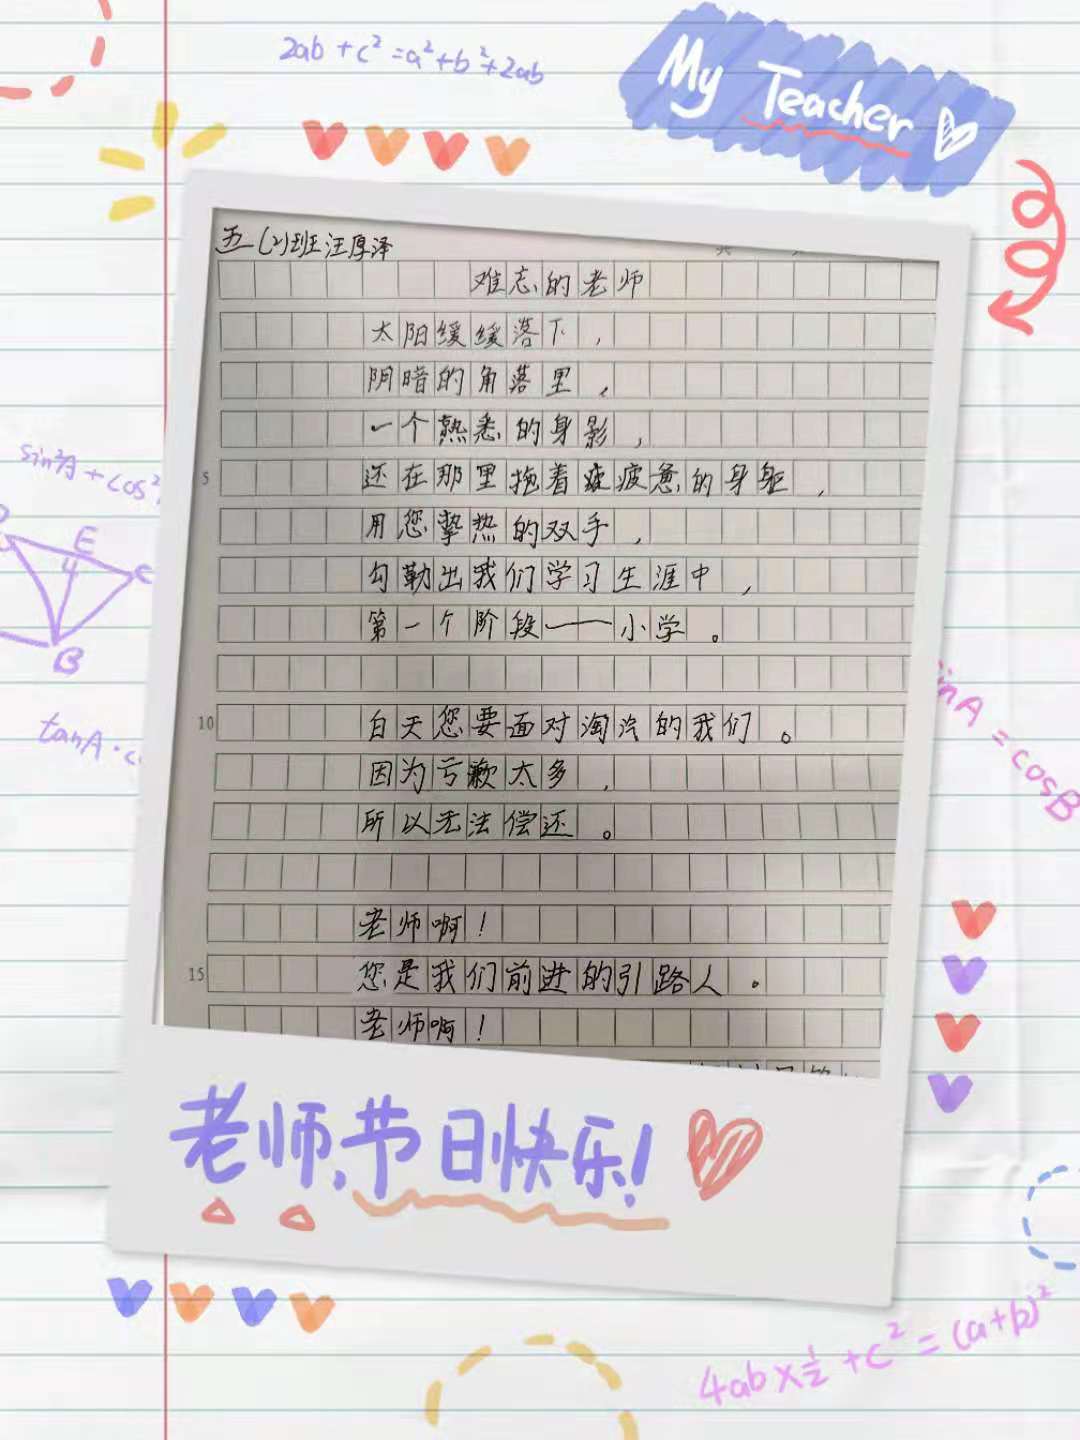 2ab + c² = a² + b² + 2ab
My Teacher
五(2)班汪厚泽
难忘的老师
太阳缓缓落下，
阴暗的角落里，
一个熟悉的身影，
还在那里拖着疲疲惫的身躯，
5
用您挚热的双手，
勾勒出我们学习生涯中，
第一个阶段——小学。
白天您要面对淘汽的我们。
10
因为亏歉太多，
所以无法偿还。
老师啊！
您是我们前进的引路人。
15
老师啊！
sin²A + cos²
E
C
B
tanA·c
sinA = cosB
老师,节日快乐!
4ab×½ + c² = (a+b)²